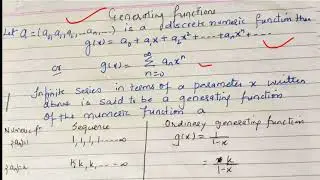 Generating functions
Let a = (a₀, a₁, a₂, ... aₙ, ...) is a discrete numeric function then
g(x) = a₀ + a₁x + a₂x² + ... + aₙxⁿ + ...
or g(x) = ∞ Σ n=0 aₙxⁿ
Infinite series in terms of a parameter x written
above is said to be a generating function
of the numeric function a
Numeric fⁿ Sequence Ordinary generating function
{aₙ}=1 1, 1, 1, ... ∞ g(x) = 1/(1-x)
k, k, ... ∞ = k/(1-x)